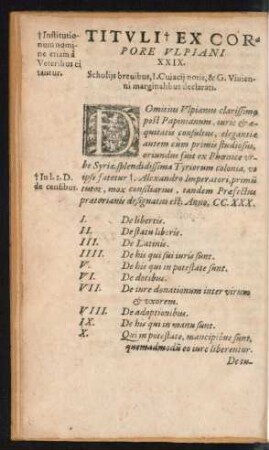 † Institutio-
num nomi-
ne etiam à
Veteribus ci
tantur.
TITVLI † EX COR-
PORE VLPIANI
XXIX.
Scholijs breuibus, I. Cuiacij notis, & G. Viuien-
ni marginalibus declarati.
DOmitius Vlpianus clarissimus
post Papinianum, iuris & æ-
quitatis consultus, elegantiæ
autem cum primis studiosus,
oriundus fuit ex Phœnice vr-
be Syriæ splendidissima Tyriorum colonia, vt
† In l. 1. D.
de censibus.
ipse fatetur †. Alexandro Imperatori, primũ
tutor, mox consiliarius, tandem Præfectus
prætorianis designatus est, Anno, CC.XXX.
I. De libertis.
II. De statu liberis.
III. De Latinis.
IIII. De his qui sui iuris sunt.
V. De his qui in potestate sunt.
VI. De dotibus.
VII. De iure donationum inter virum
& vxorem.
VIII. De adoptionibus.
IX. De his qui in manu sunt.
X. Qui in potestate, mancipióue sunt,
quemadmodũ eo iure liberentur.
De tu-